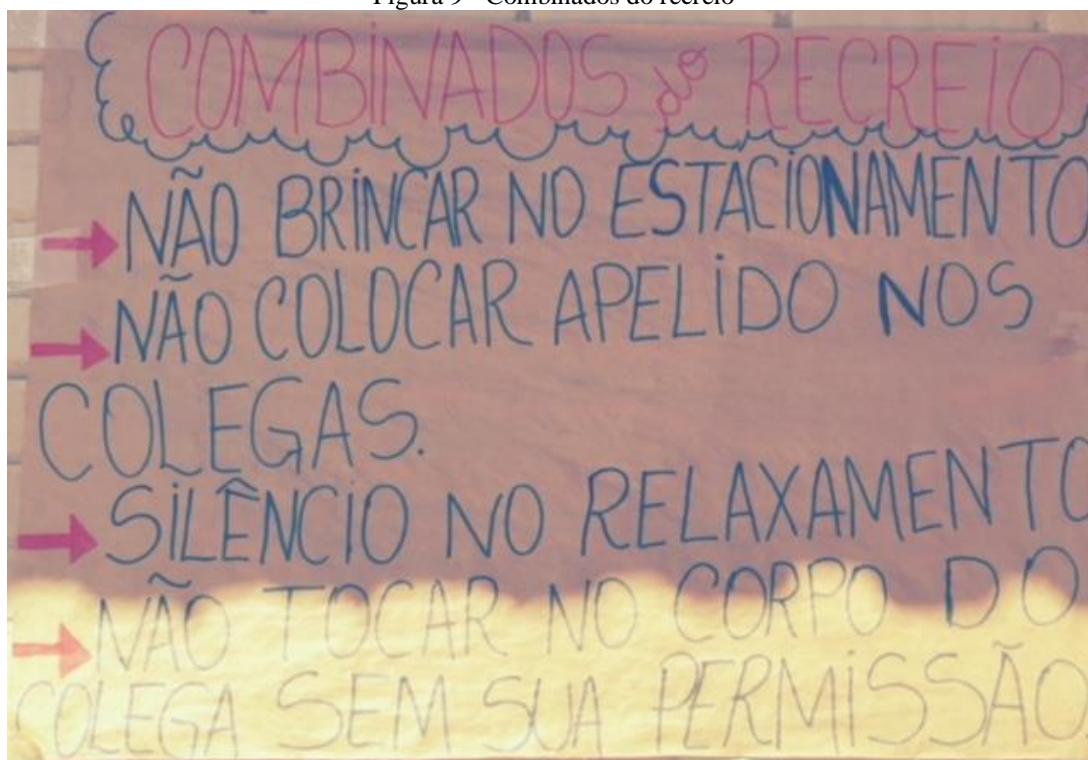 Figura 9 - Combinados do recreio
COMBINADOS do RECREIO
NÃO BRINCAR NO ESTACIONAMENTO
NÃO COLOCAR APELIDO NOS
COLEGAS.
SILÊNCIO NO RELAXAMENTO
NÃO TOCAR NO CORPO DO
COLEGA SEM SUA PERMISSÃO.